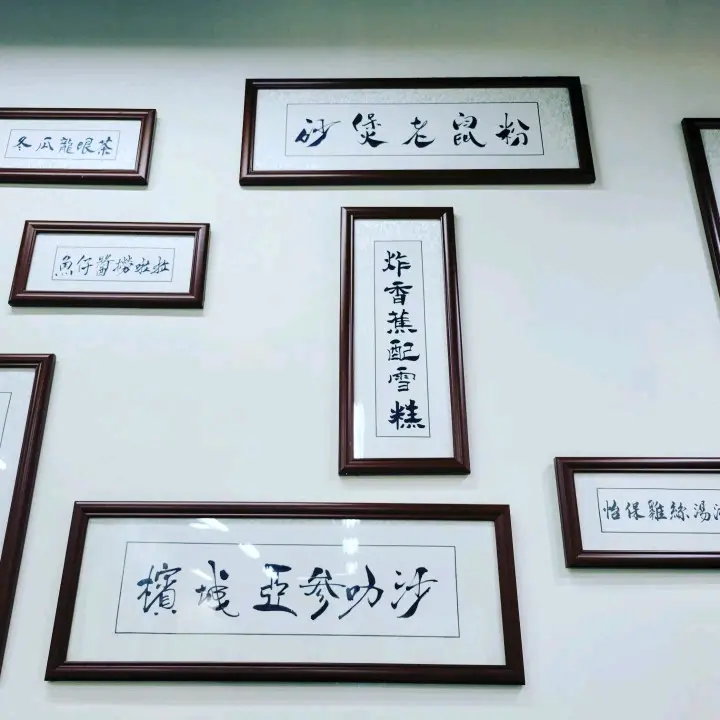 冬瓜龍眼茶
砂煲老鼠粉
魚仔醬撈
炸香蕉配雪糕
怡保雞絲湯
檳城亞參叻沙